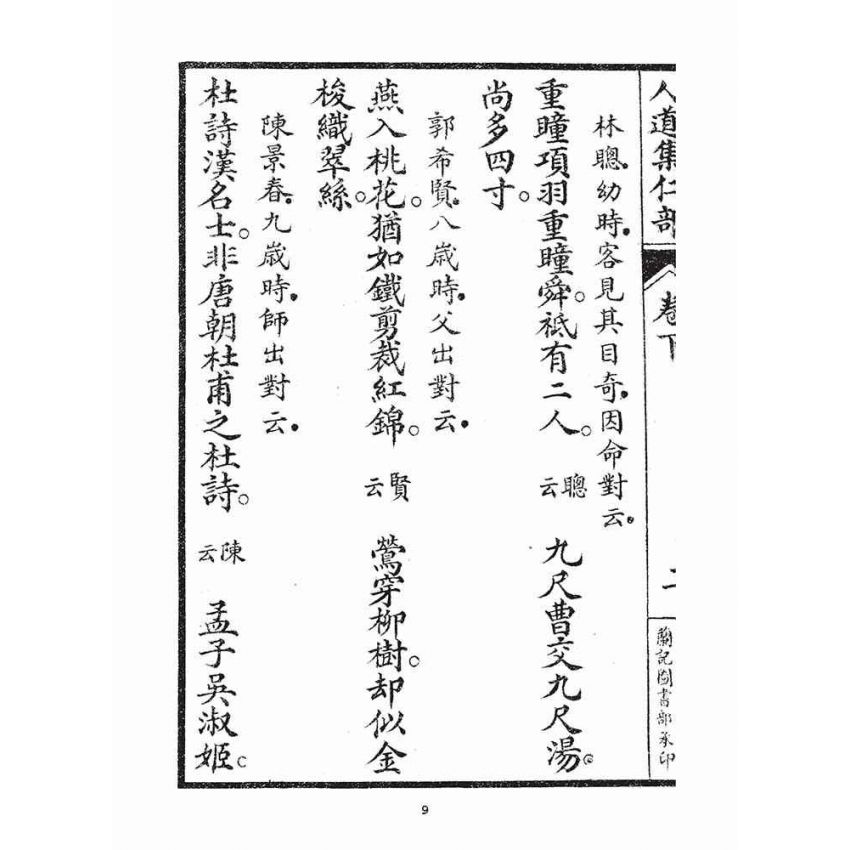 人道集仁部 卷下 二 蘭記圖書部承印
林聰。幼時。客見其目奇。因命對云。
重瞳項羽重瞳舜。祇有二人。聰云 九尺曹交九尺湯。
尚多四寸。
郭希賢。八歲時。父出對云。
燕入桃花。猶如鐵剪裁紅錦。賢云 鶯穿柳樹。却似金
梭織翠絲。
陳景春。九歲時。師出對云。
杜詩漢名士。非唐朝杜甫之杜詩。陳云 孟子吳淑姬。
9